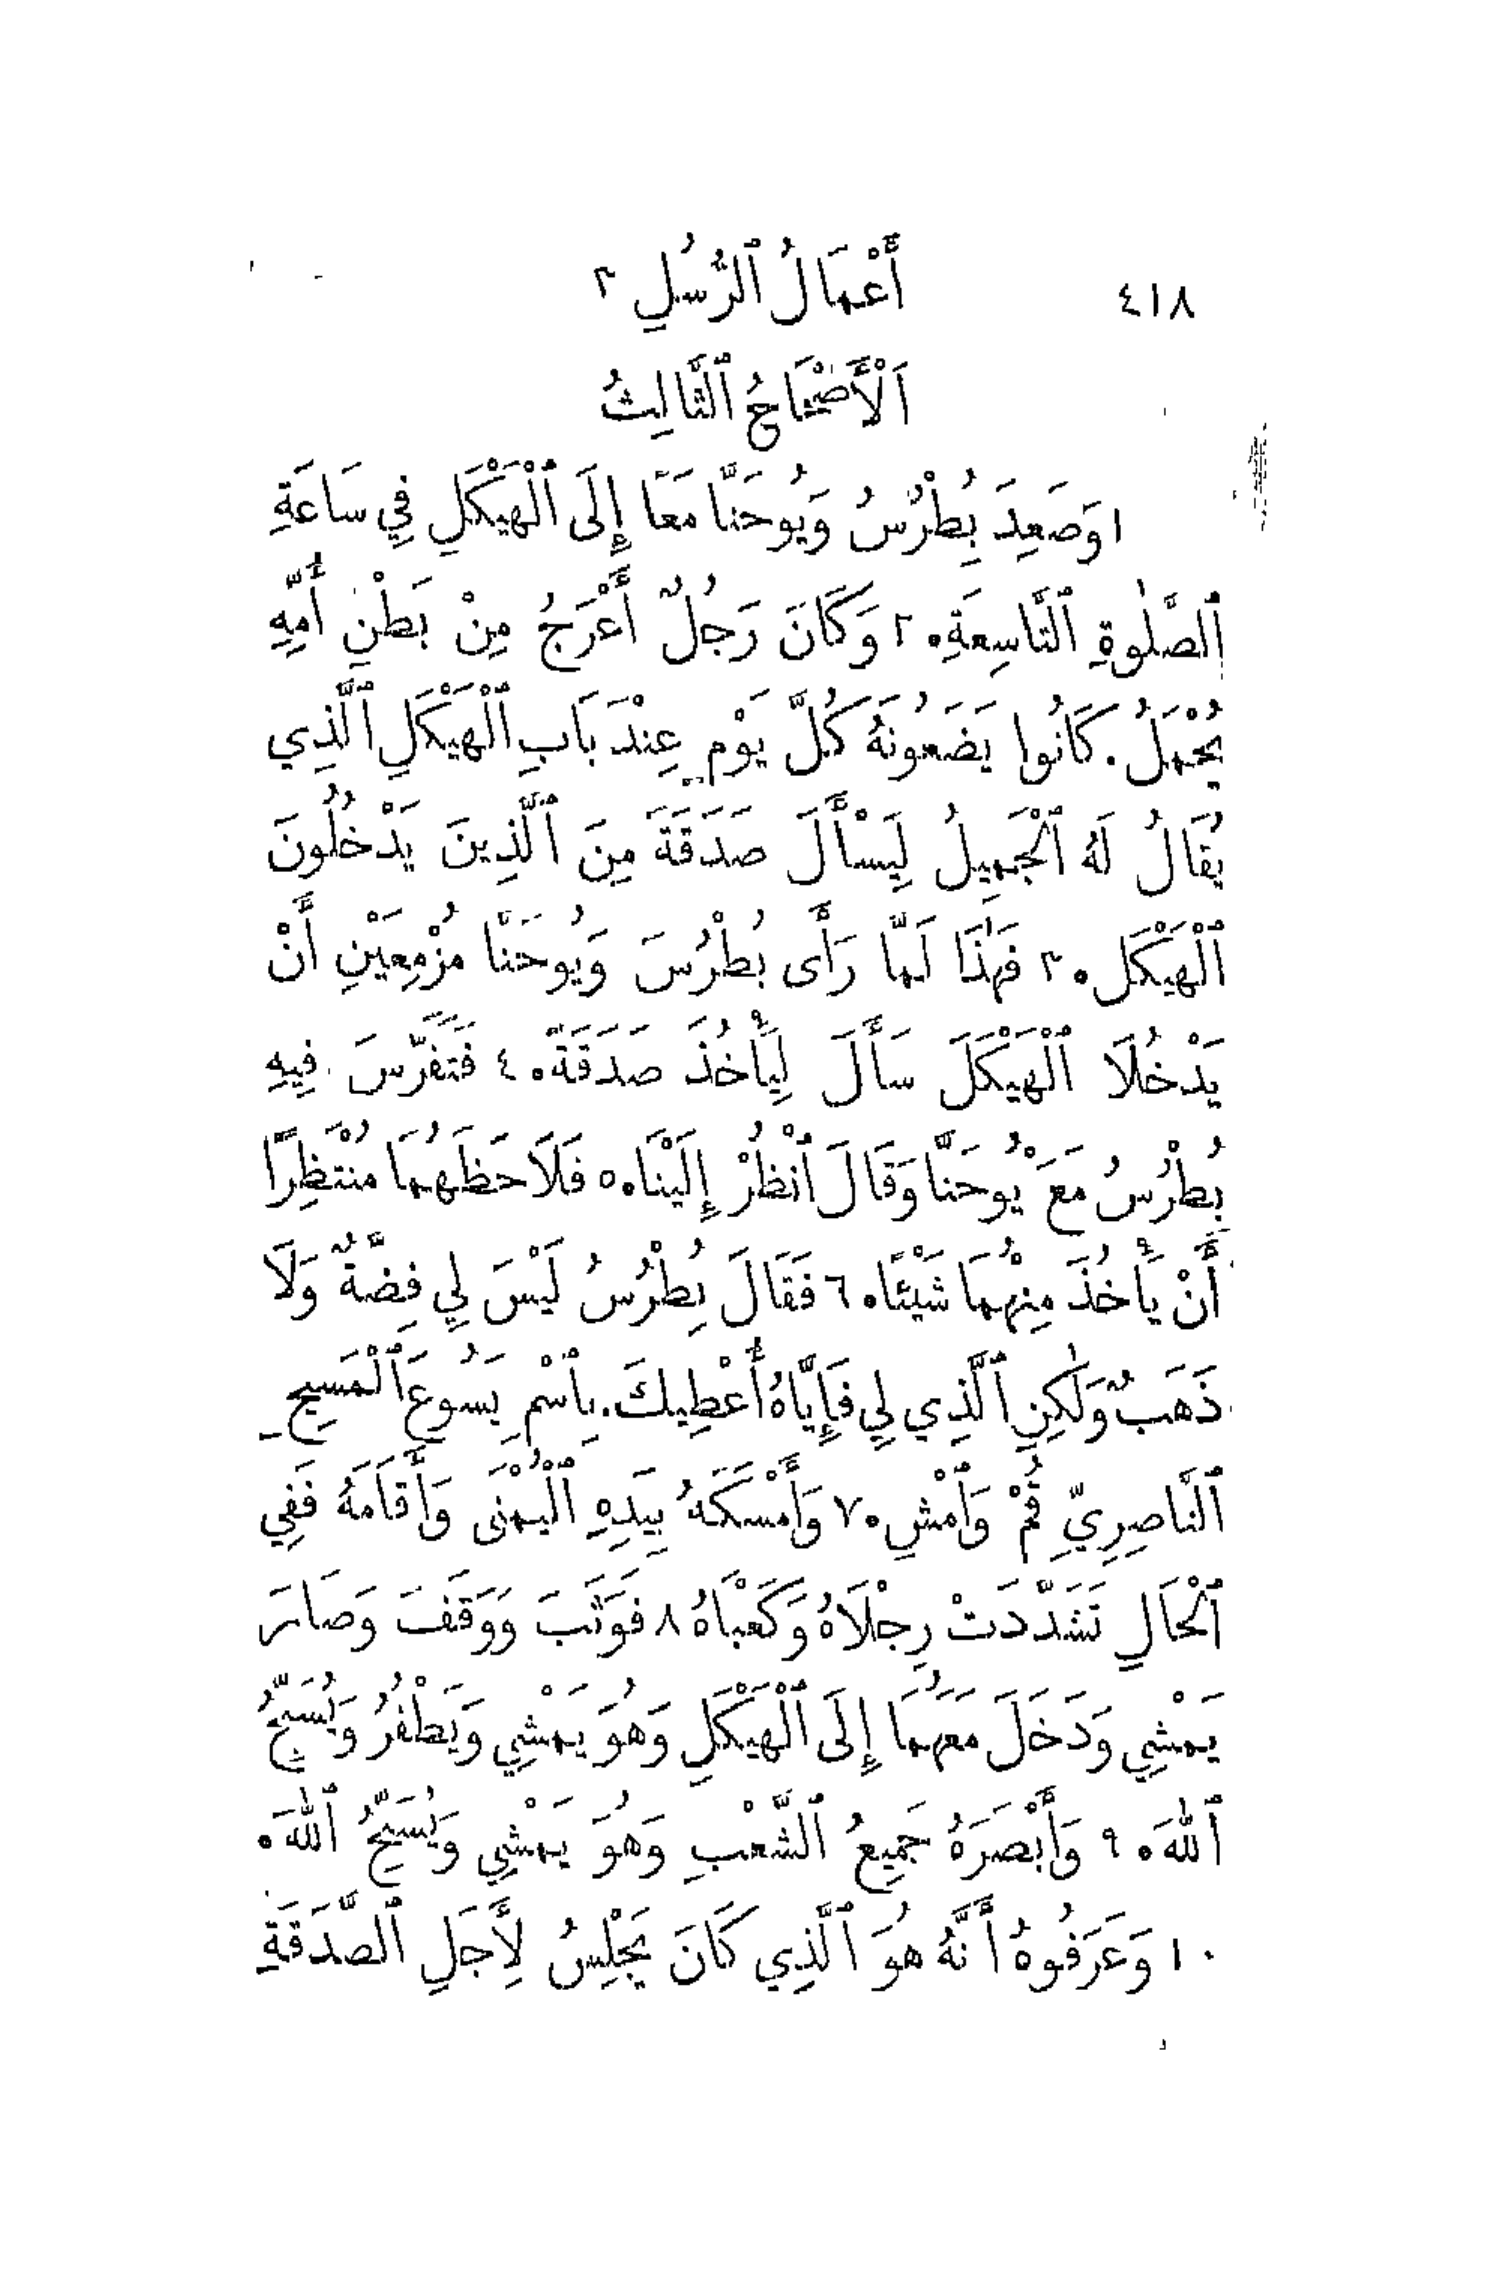 ٤١٨ أَعْمَالُ ٱلرُّسُلِ ٣
اَلْأَصْحَاحُ ٱلثَّالِثُ
١ وَصَعِدَ بُطْرُسُ وَيُوحَنَّا مَعًا إِلَى ٱلْهَيْكَلِ فِي سَاعَةِ
ٱلصَّلٰوةِ ٱلتَّاسِعَةِ. ٢ وَكَانَ رَجُلٌ أَعْرَجُ مِنْ بَطْنِ أُمِّهِ
يُحْمَلُ. كَانُوا يَضَعُونَهُ كُلَّ يَوْمٍ عِنْدَ بَابِ ٱلْهَيْكَلِ ٱلَّذِي
يُقَالُ لَهُ ٱلْجَمِيلُ لِيَسْأَلَ صَدَقَةً مِنَ ٱلَّذِينَ يَدْخُلُونَ
ٱلْهَيْكَلَ. ٣ فَهٰذَا لَمَّا رَأَى بُطْرُسَ وَيُوحَنَّا مُزْمِعَيْنِ أَنْ
يَدْخُلَا ٱلْهَيْكَلَ سَأَلَ لِيَأْخُذَ صَدَقَةً. ٤ فَتَفَرَّسَ فِيهِ
بُطْرُسُ مَعَ يُوحَنَّا وَقَالَ ٱنْظُرْ إِلَيْنَا. ٥ فَلَاحَظَهُمَا مُنْتَظِرًا
أَنْ يَأْخُذَ مِنْهُمَا شَيْئًا. ٦ فَقَالَ بُطْرُسُ لَيْسَ لِي فِضَّةٌ وَلَا
ذَهَبٌ وَلٰكِنِ ٱلَّذِي لِي فَإِيَّاهُ أُعْطِيكَ. بِٱسْمِ يَسُوعَ ٱلْمَسِيحِ
ٱلنَّاصِرِيِّ قُمْ وَٱمْشِ. ٧ وَأَمْسَكَهُ بِيَدِهِ ٱلْيُمْنَى وَأَقَامَهُ فَفِي
ٱلْحَالِ تَشَدَّدَتْ رِجْلَاهُ وَكَعْبَاهُ ٨ فَوَثَبَ وَوَقَفَ وَصَارَ
يَمْشِي وَدَخَلَ مَعَهُمَا إِلَى ٱلْهَيْكَلِ وَهُوَ يَمْشِي وَيَطْفُرُ وَيُسَبِّحُ
ٱللّٰهَ. ٩ وَأَبْصَرَهُ جَمِيعُ ٱلشَّعْبِ وَهُوَ يَمْشِي وَيُسَبِّحُ ٱللّٰهَ.
١٠ وَعَرَفُوهُ أَنَّهُ هُوَ ٱلَّذِي كَانَ يَجْلِسُ لِأَجَلِ ٱلصَّدَقَةِ